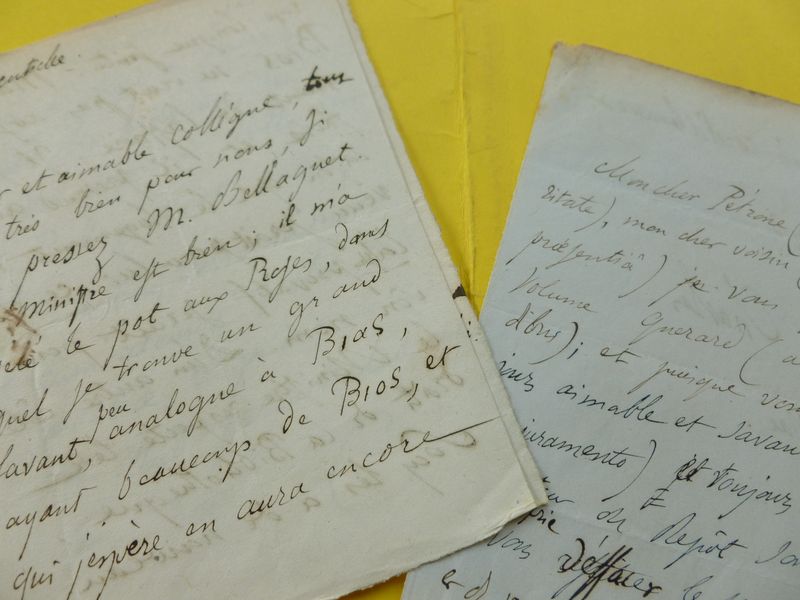 et aimable collègue, tous
très bien pour nous, si
pressez M. Bellaguet.
Ministre est bien; il m'a
le pot aux Roses, dans
quel je trouve un grand
peu
savant, analogue à BIAS,
ayant beaucoup de BIOS, et
qui j'espère en aura encore
Mon cher Pétrone (
ritate), mon cher voisin (
præsentiâ) je vous
Volume Guerard (
dibus); et puisque vous
aimable et savant
juramento) et toujours
du Depôt
vous